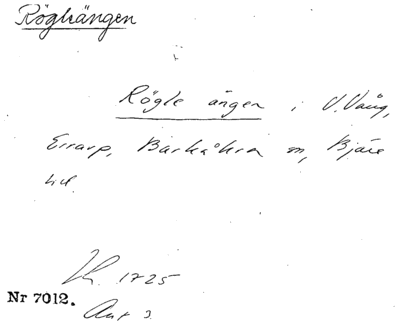 Röglsängen
Rögle ängen i V. Vång,
Errarp, Barkåkra sn, Bjäre
hd.
1725
Nr 7012.
Akt 3.